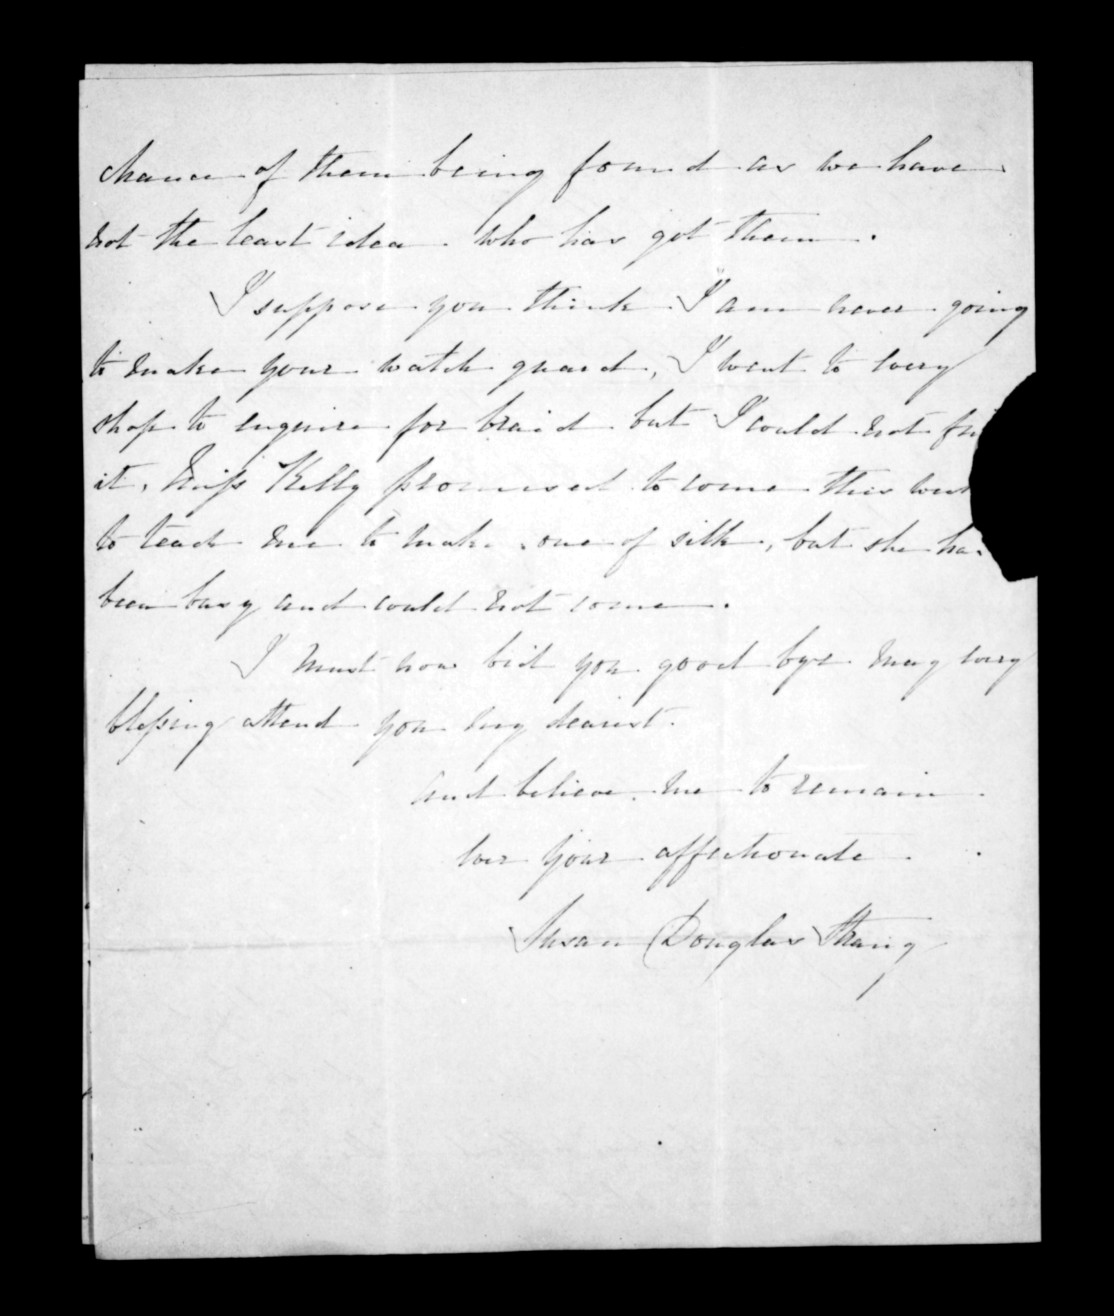 chance of them being found as we have
not the least idea who has got them.
I suppose you think I am never going
to make your watch guard, I went to every
shop to enquire for braid but I could not fi
it, Miss Kelly promised to come this wee
to teach me to make one of silk, but she ha
been busy and could not come.
I must now bid you good bye may every
blessing attend you my dearest.
and believe me to remain
ever your affectionate
Susan Douglas Strang